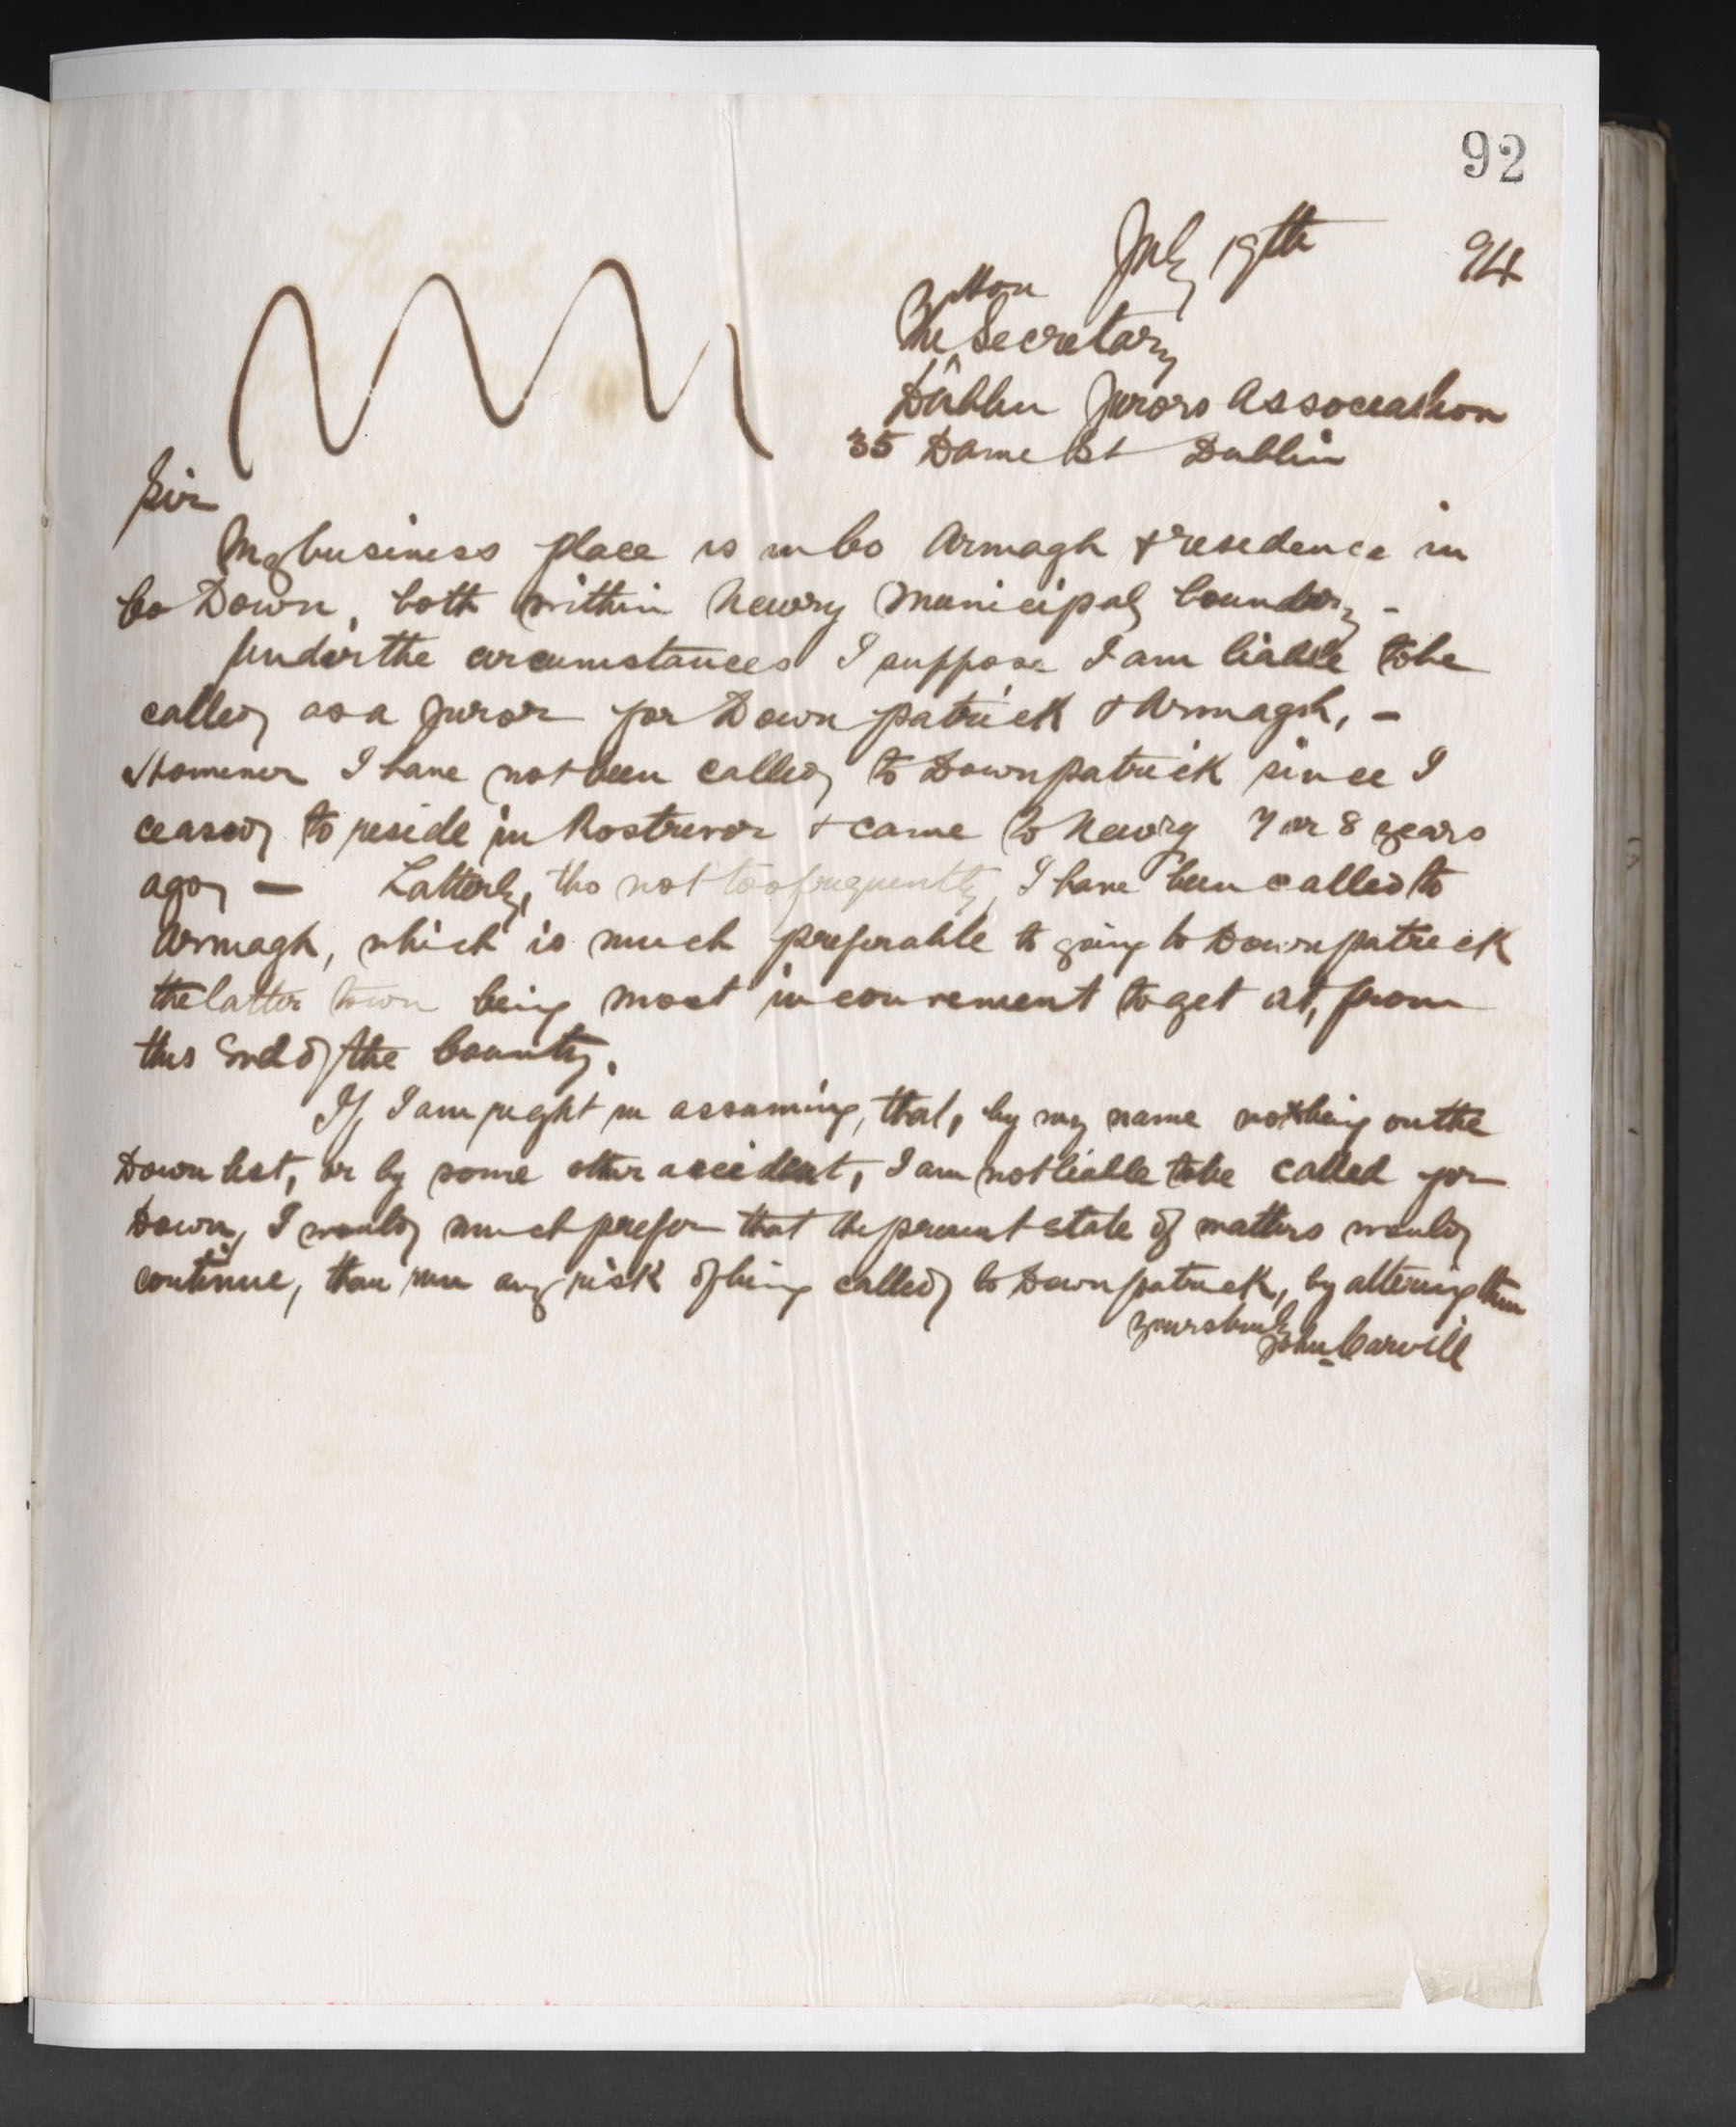 92
July 19th 94
Hon
The Secretary
^
Dublin Jurors Association
35 Dame St Dublin
Sir
My business place is in Co Armagh & residence in
Co Down, both within Newry Municipal boundary -
Under the circumstances I suppose I am liable to be
called as a juror for Downpatrick & Armagh, -
However I have not been called to Downpatrick since I
ceased to reside in Rostrevor & came to Newry 7 or 8 years
ago - Latterly, tho not too frequently, I have been called to
Armagh, which is much preferable to going to Downpatrick
the latter town being most inconvenient to get at, from
this end of the County.
If I am right in assuming, that, by my name not being on the
Down list, or by some other accident, I am not liable to be called for
Down, I would much prefer that the present state of matters would
continue, than run any risk of being called to Downpatrick, by altering them
Yours truly
John Carvill